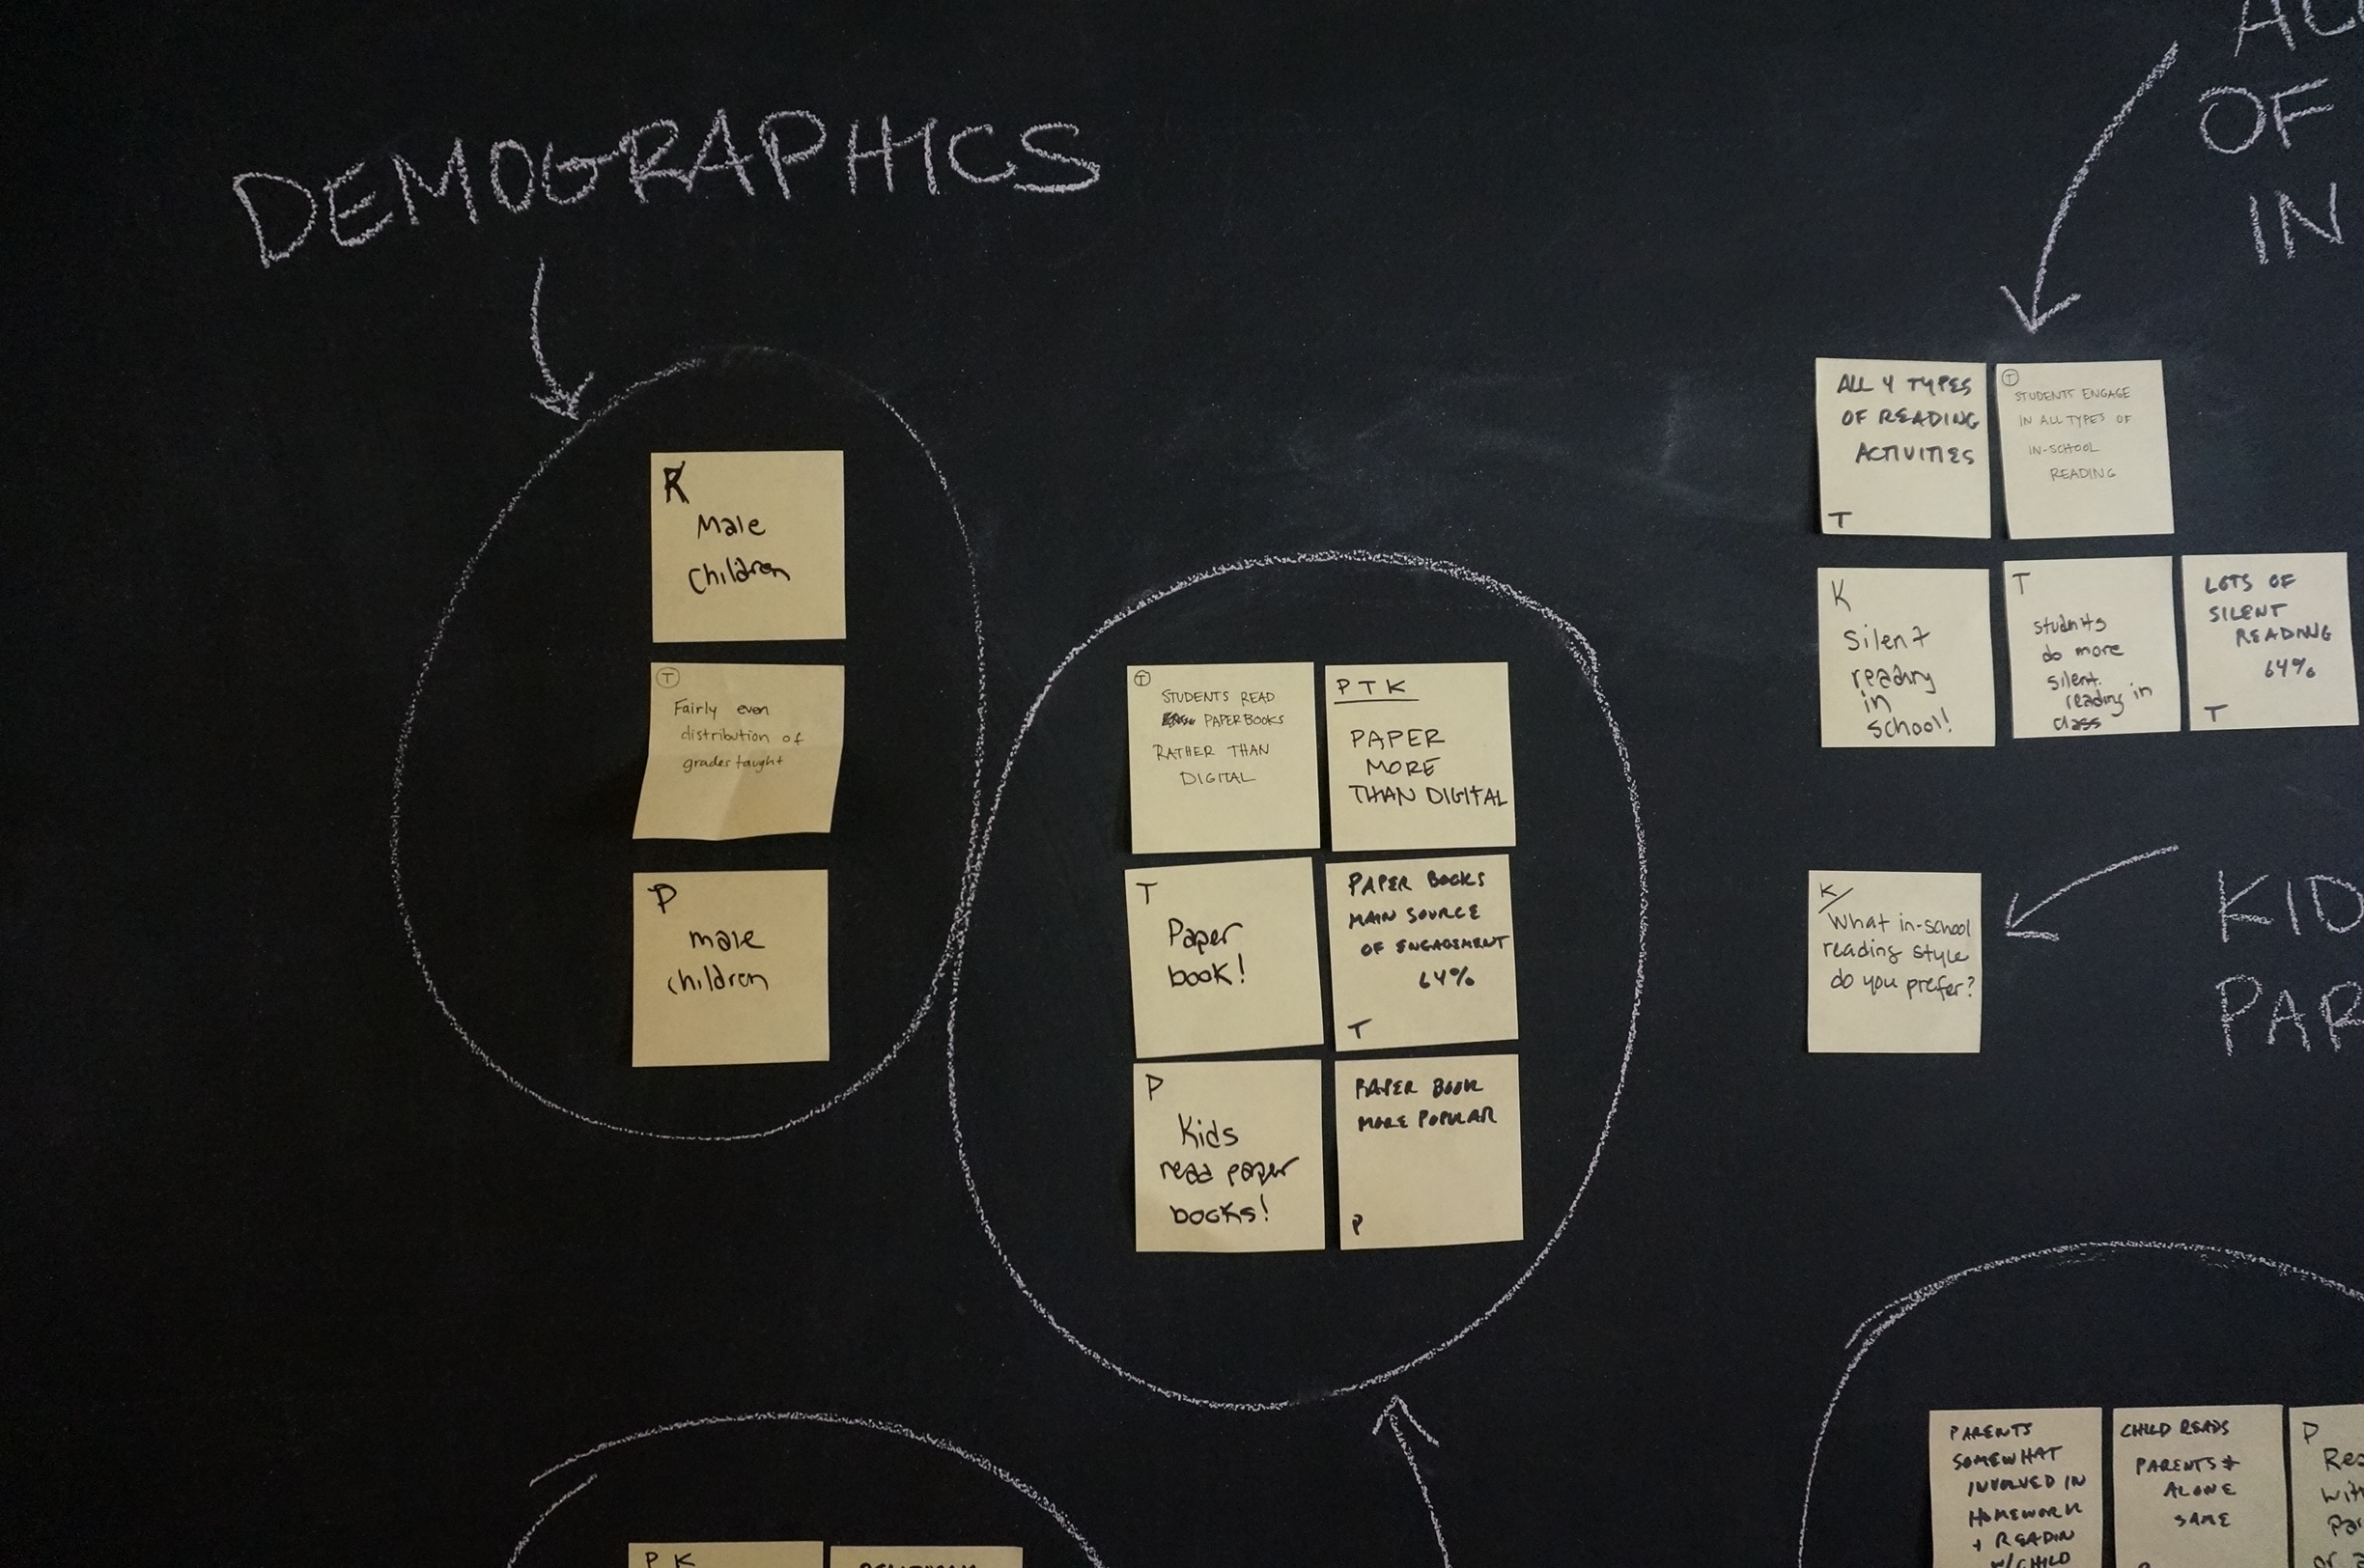 DEMOGRAPHICS
OF
IN
K
Male
children
T
Fairly even
distribution of
grades taught
P
male
children
T
STUDENTS READ
PAPERBOOKS
RATHER THAN
DIGITAL
P T K
PAPER
MORE
THAN DIGITAL
T
Paper
book!
PAPER BOOKS
MAIN SOURCE
OF ENGAGEMENT
64%
T
P
Kids
read paper
books!
PAPER BOOK
MORE POPULAR
P
ALL 4 TYPES
OF READING
ACTIVITIES
T
T
STUDENTS ENGAGE
IN ALL TYPES OF
IN-SCHOOL
READING
K
Silent
reading
in
school!
T
students
do more
silent
reading in
class
LOTS OF
SILENT
READING
64%
T
K
What in-school
reading style
do you prefer?
KID
PAR
PARENTS
SOMEWHAT
INVOLVED IN
HOMEWORK
+ READIN
W/CHILD
CHILD READS
PARENTS +
ALONE
SAME
P
P K